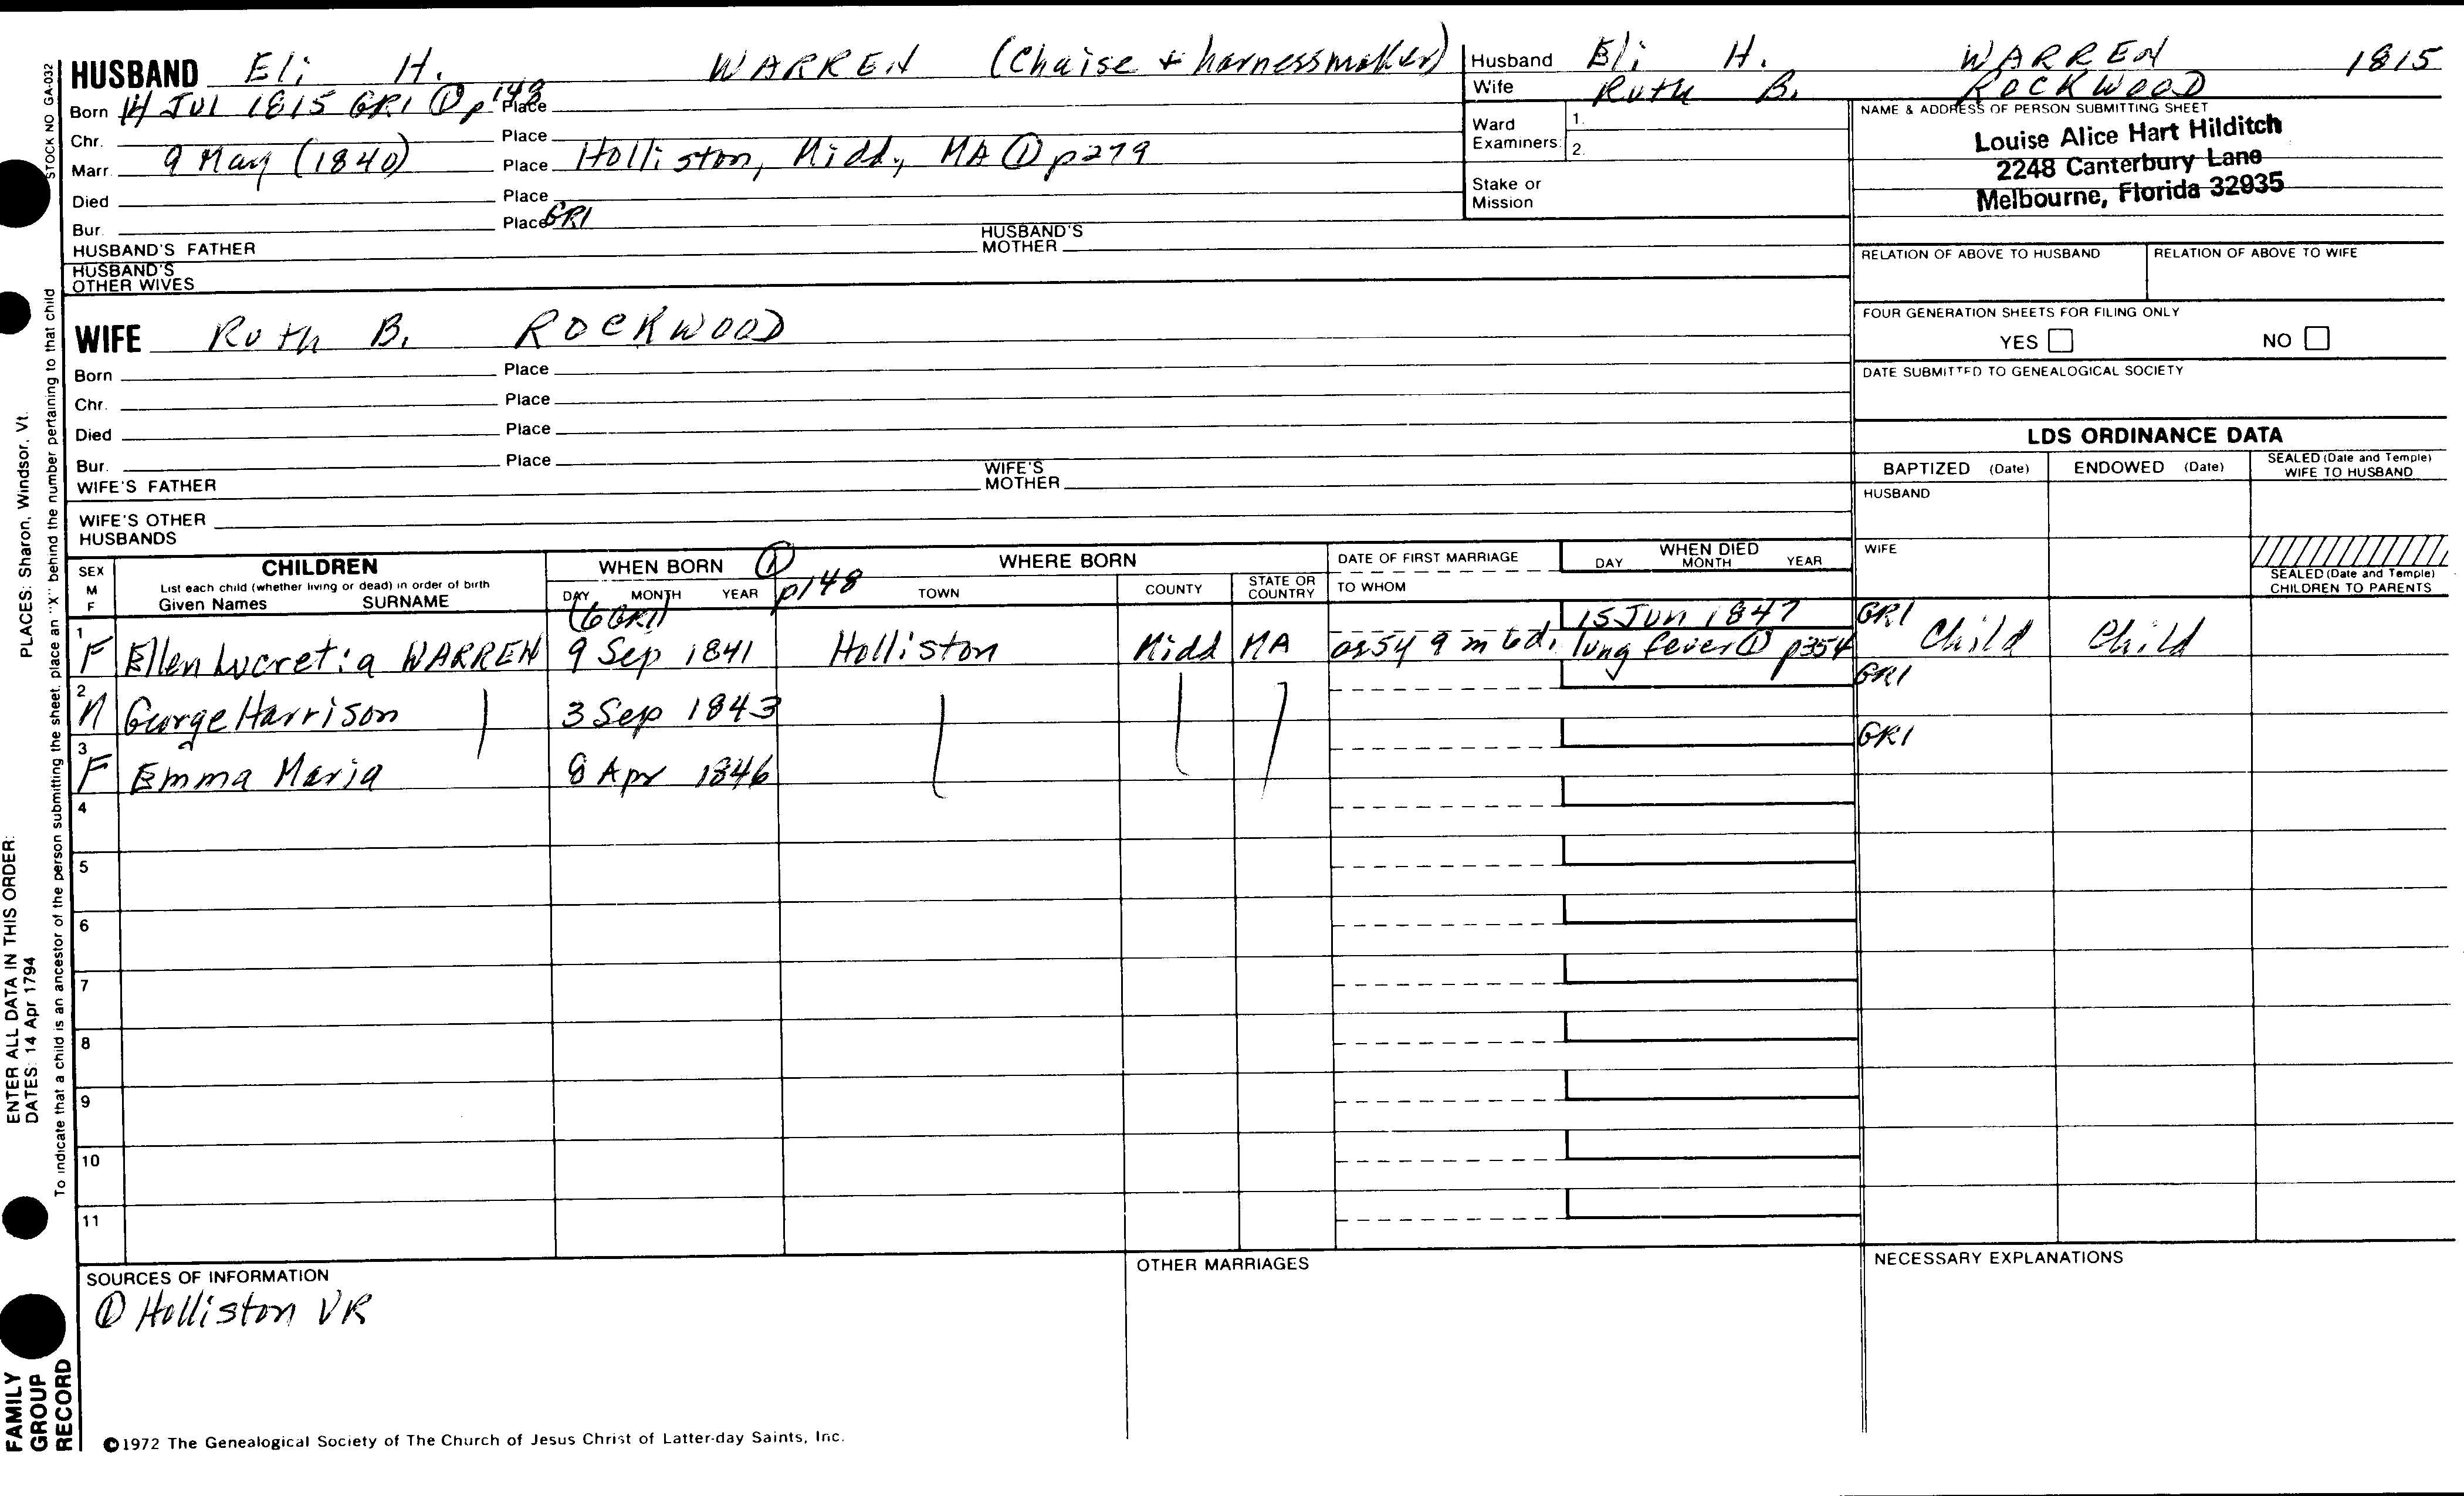 HUSBAND Eli H. WARREN (Chaise + harnessmaker)
Born 14 JUL 1815 GR1 ① p 148 Place
Chr. Place
Marr. 9 May (1840) Place Holliston, Midd, MA ① p279
Died Place
Bur. Place GR1
HUSBAND'S FATHER HUSBAND'S MOTHER
HUSBAND'S OTHER WIVES
WIFE Ruth B. ROCKWOOD
Born Place
Chr. Place
Died Place
Bur. Place
WIFE'S FATHER WIFE'S MOTHER
WIFE'S OTHER HUSBANDS
Husband Eli H. WARREN 1815
Wife Ruth B. ROCKWOOD
Ward Examiners: 1.
2.
Stake or Mission
NAME & ADDRESS OF PERSON SUBMITTING SHEET
Louise Alice Hart Hilditch
2248 Canterbury Lane
Melbourne, Florida 32935
RELATION OF ABOVE TO HUSBAND RELATION OF ABOVE TO WIFE
FOUR GENERATION SHEETS FOR FILING ONLY
YES NO
DATE SUBMITTED TO GENEALOGICAL SOCIETY
LDS ORDINANCE DATA
BAPTIZED (Date) ENDOWED (Date) SEALED (Date and Temple) WIFE TO HUSBAND
HUSBAND
WIFE
SEALED (Date and Temple) CHILDREN TO PARENTS
SEX M F
CHILDREN
List each child (whether living or dead) in order of birth
Given Names SURNAME
WHEN BORN ① p148
DAY MONTH YEAR
WHERE BORN
TOWN COUNTY STATE OR COUNTRY
DATE OF FIRST MARRIAGE
TO WHOM
WHEN DIED
DAY MONTH YEAR
(6 GR1) 15 Jun 1847 GR1
1 F Ellen Lucretia WARREN 9 Sep 1841 Holliston Midd MA 5y 9m 6d. lung fever ① p354 Child Child
GR1
2 M George Harrison 3 Sep 1843
GR1
3 F Emma Maria 8 Apr 1846
4
5
6
7
8
9
10
11
SOURCES OF INFORMATION
① Holliston VR
OTHER MARRIAGES
NECESSARY EXPLANATIONS
©1972 The Genealogical Society of The Church of Jesus Christ of Latter-day Saints, Inc.
STOCK NO GA-032
To indicate that a child is an ancestor of the person submitting the sheet, place an "X" behind the number pertaining to that child
ENTER ALL DATA IN THIS ORDER:
DATES: 14 Apr 1794
PLACES: Sharon, Windsor, Vt.
FAMILY GROUP RECORD